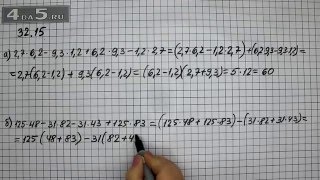 4BA5.RU
32.15
а) 2,7·6,2-9,3·1,2+6,2·9,3-1,2·2,7=(2,7·6,2-1,2·2,7)+(6,2·9,3-9,3·1,2)=
=2,7(6,2-1,2)+9,3(6,2-1,2)=(6,2-1,2)(2,7+9,3)=5·12=60
б) 125·48-31·82-31·43+125·83=(125·48+125·83)-(31·82+31·43)=
=125(48+83)-31(82+4